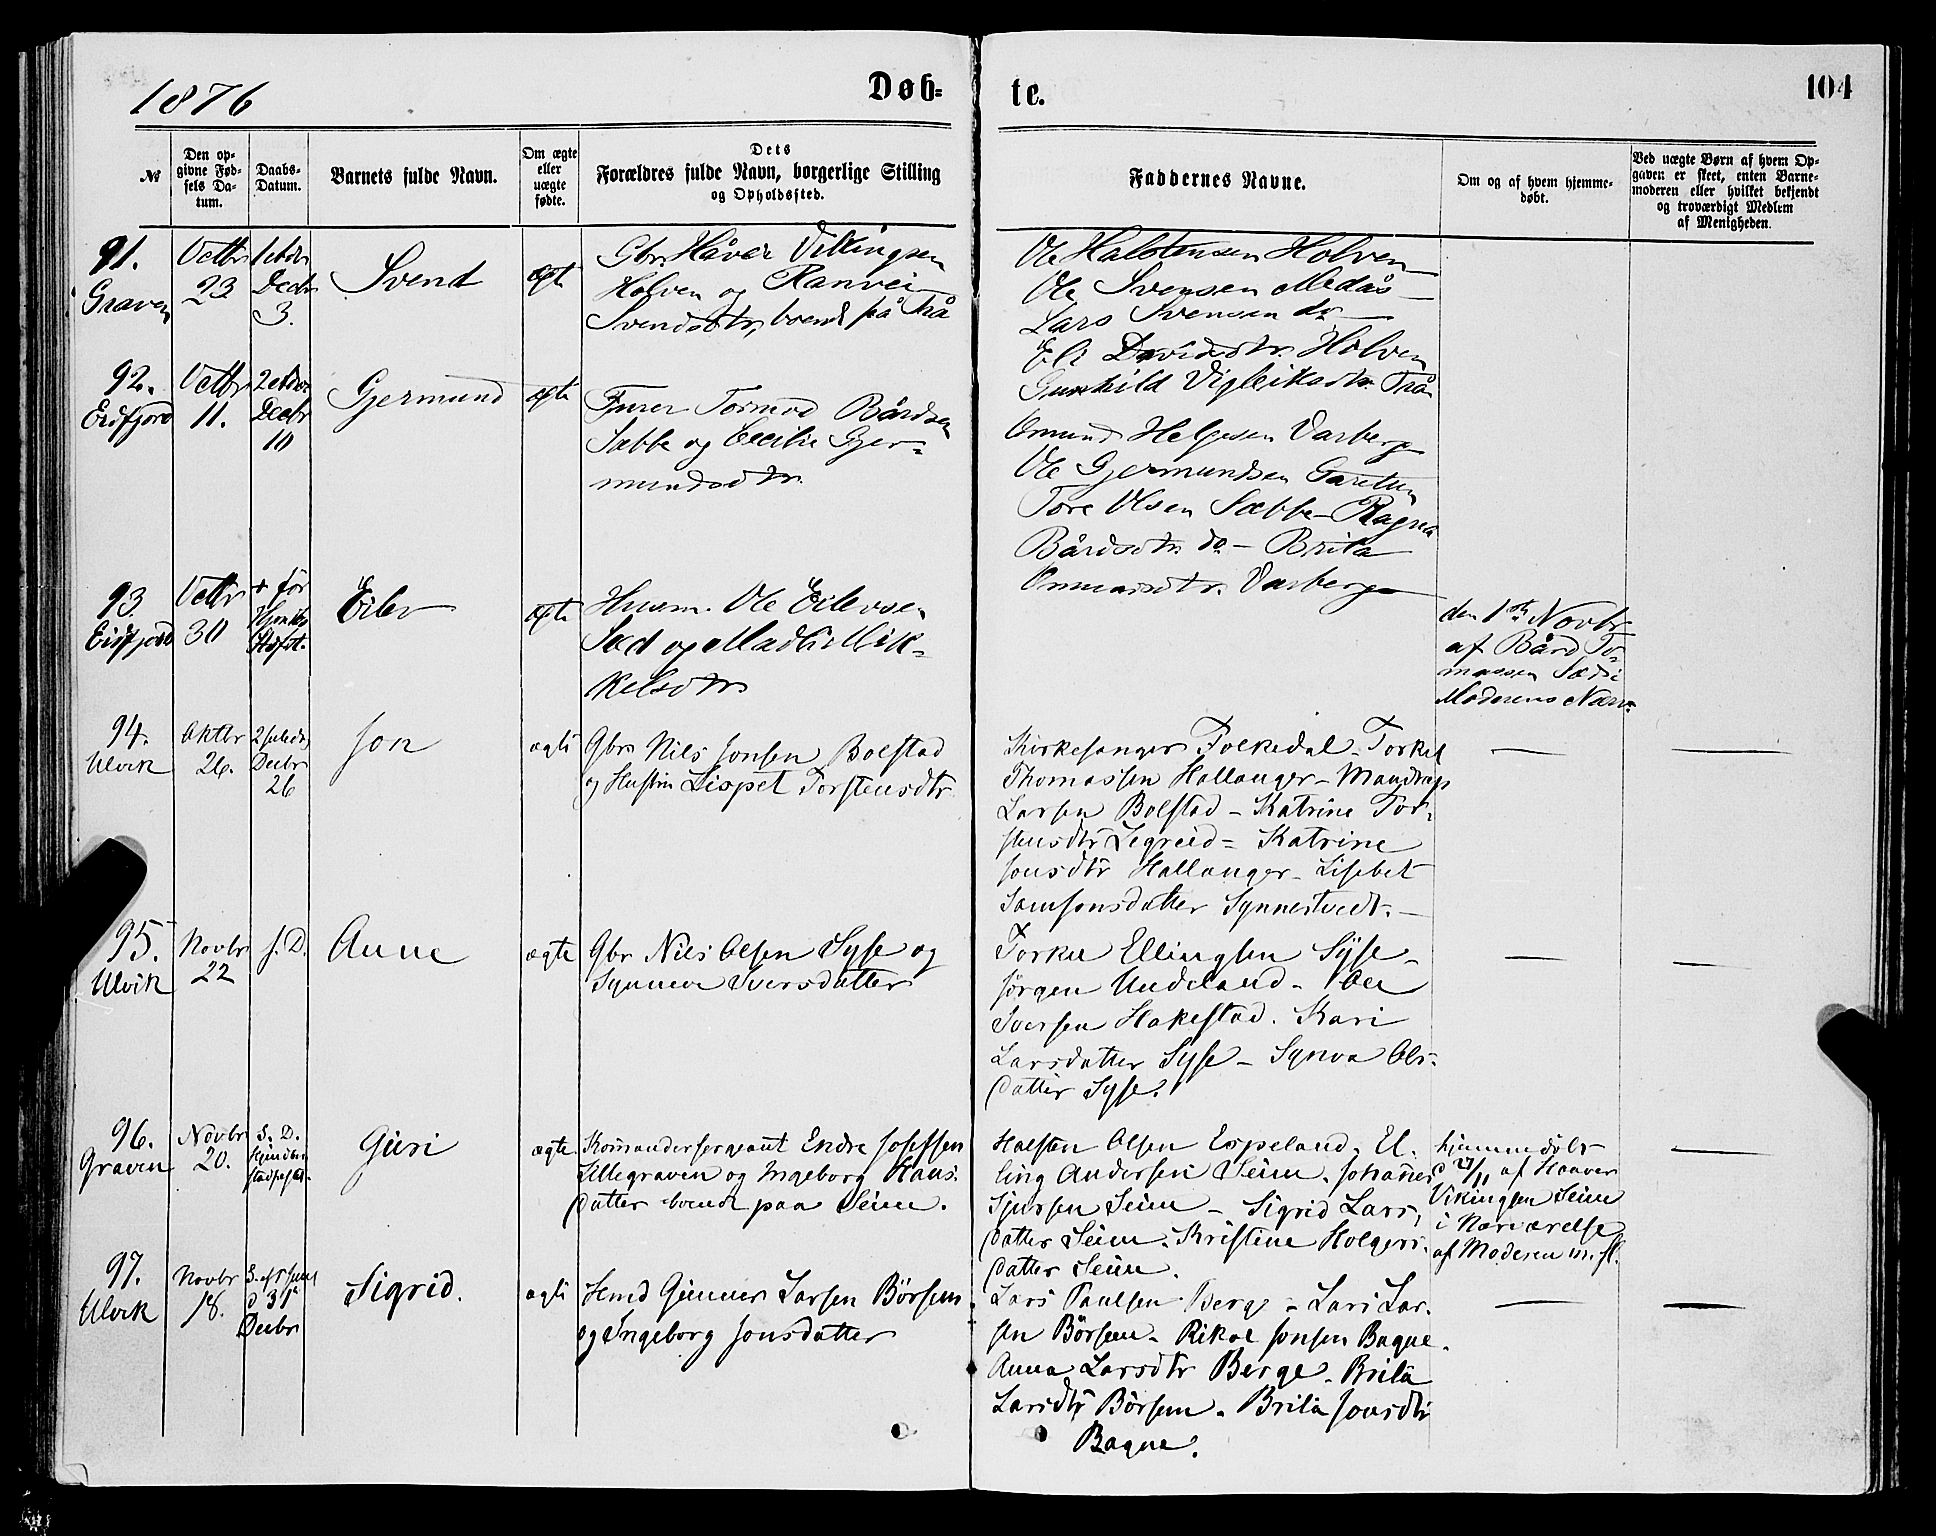 1876
Døb-
te.
104
№
Den op-
givne Fød-
sels Da-
tum.
Daabs-
Datum.
Barnets fulde Navn.
Om ægte
eller
uægte
fødte.
Dets
Forældres fulde Navn, borgerlige Stilling
og Opholdssted.
Faddernes Navne.
Om og af hvem hjemme-
døbt.
Ved uægte Børn af hvem Op-
gaven er skeet, enten Barne-
moderen eller hvilket bekjendt
og troværdigt Medlem
af Menigheden.
91.
Graven
Octbr
23
Decbr
3.
Svend
ægte
Gbr. Håver Vikingsen
Holven og Ranvei
Svendsdtr, boende på Trå
Ole Halstensen Holven
Ole Svensen Medås
Lars Svensen do
Eli Davidsdtr. Holven
Gunhild Vigleiksdtr Trå
92.
Eidfjord
Octbr
11.
Decbr
10
Gjermund
ægte
Furer Tormod Bårdsen
Sæbbe og Cecilie Gjer-
mundsdtr.
Omund Helgesen Varberg
Ole Gjermundsen Garetun
Tore Olsen Sæbbe - Ragna
Bårdsdtr do - Brita
Omundsdtr. Varberg
93
Eidfjord
Octbr
30
+ før
Eilev
ægte
Husm. Ole Eilevse.
Sæd og Madli Mik-
kelsdtr
den 1ste Novbr
af Bård To-
massen Sæd i
Moderens Nærv.
94.
Ulvik
Oktbr
26.
Decbr
26
Jon
ægte
Gbr Nils Jonsen Bolstad
og Hustru Lispet Torstensdtr
Kirkesanger Folkedal - Torkel
Thomassen Hallanger - Mandrup
Larsen Bolstad - Katrine Tor-
stensdtr Legreid - Katrine
Jonsdtr Hallanger - Lisbet
Samsonsdatter Synnestvedt. -
95.
Ulvik
Novbr
22
s. D.
Anne
ægte
Gbr Nils Olsen Syse og
Synneve Iversdatter
Torkel Ellingsen Syse -
Jørgen Undeland - Ole
Iversen Hakestad. Kari
Larsdatter Syse - Synva Ols-
datter Syse.
96.
Graven
Novbr
20.
S. D.
Guri
ægte
Komandersergeant Endre Josefsen
Lillegraven og Ingeborg Hans-
datter boende paa Seim.
Halsten Olsen Espeland. El-
ling Andersen Seim. Johannes
Sjursen Seim - Sigrid Lars-
datter Seim. Kristine Holgers-
datter Seim.
hjemmedøbt
d 27/11 af Haaver
Vikingsen Seim
i Nærværelse
af Moderen m. fl.
97.
Ulvik
Novbr
18.
d 31
Decbr
Sigrid.
ægte
Hmd Gunner Larsen Børsem
og Ingeborg Jonsdatter
Lars Paulsen Berge - Lars Lar-
sen Børsem. Rikol Jonsen Bagne.
Anna Larsdtr Berge. Brita
Larsdtr Børsem. Brita Jonsdtr
Bagne.